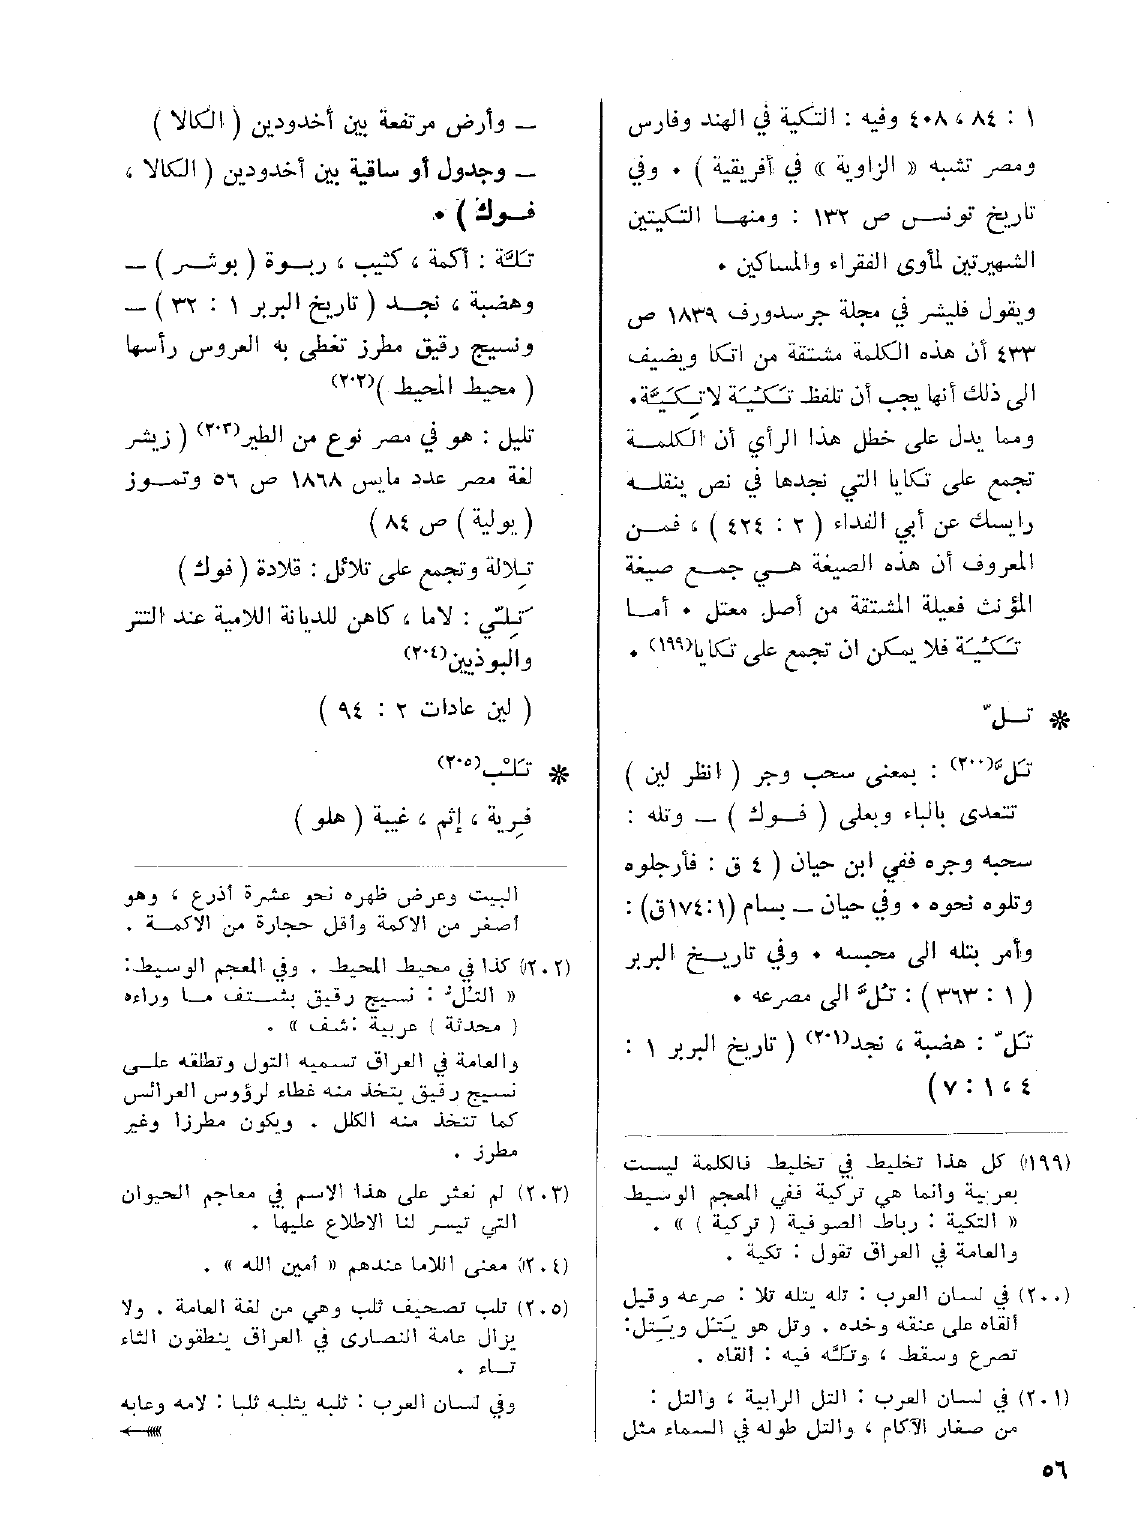 ١ : ٨٤ ، ٤٠٨ وفيه : التكية في الهند وفارس
ومصر تشبه « الزاوية » في أفريقية ) . وفي
تاريخ تونس ص ١٣٢ : ومنها التكيتين
الشهيرتين لمأوى الفقراء والمساكين .
ويقول فليشر في مجلة جرسدورف ١٨٣٩ ص
٤٣٣ أن هذه الكلمة مشتقة من اتكا ويضيف
الى ذلك أنها يجب أن تلفظ تَكْئِيَة لا تَكِيَّة.
ومما يدل على خطل هذا الرأي أن الكلمة
تجمع على تكايا التي نجدها في نص ينقله
رايسك عن أبي الفداء ( ٢ : ٤٢٤ ) ، فمن
المعروف أن هذه الصيغة هي جمع صيغة
المؤنث فعيلة المشتقة من أصل معتل . أما
تَكْئِيَة فلا يمكن ان تجمع على تكايا(١٩٩) .
* تلّ
تَلَّ(٢٠٠) : بمعنى سحب وجر ( انظر لين )
تتعدى بالباء وبعلى ( فوك ) — وتله :
سحبه وجره ففي ابن حيان ( ٤ ق : فأرجلوه
وتلوه نحوه . وفي حيان — بسام (١:١٧٤ق) :
وأمر بتله الى محبسه . وفي تاريخ البربر
( ١ : ٣٦٣ ) : تُلَّ الى مصرعه .
تَلّ : هضبة ، نجد(٢٠١) ( تاريخ البربر ١ :
٤ ، ١ : ٧)
(١٩٩) كل هذا تخليط في تخليط فالكلمة ليست
بعربية وانما هي تركية ففي المعجم الوسيط
« التكية : رباط الصوفية ( تركية ) » .
والعامة في العراق تقول : تكية .
(٢٠٠) في لسان العرب : تله يتله تلا : صرعه وقيل
ألقاه على عنقه وخده . وتل هو يَتُلّ ويَتِل:
تصرع وسقط ، وتَلَّه فيه : ألقاه .
(٢٠١) في لسان العرب : التل الرابية ، والتل :
من صغار الآكام ، والتل طوله في السماء مثل
— وأرض مرتفعة بين أخدودين ( الكالا )
— وجدول أو ساقية بين أخدودين ( الكالا ،
فوك ) .
تَلَّة : أكمة ، كثيب ، ربوة ( بوشر ) —
وهضبة ، نجد ( تاريخ البربر ١ : ٣٢ ) —
ونسيج رقيق مطرز تغطى به العروس رأسها
( محيط المحيط )(٢٠٢)
تليل : هو في مصر نوع من الطير(٢٠٣) ( زيشر
لغة مصر عدد مايس ١٨٦٨ ص ٥٦ وتموز
( يولية ) ص ٨٤ )
تِلالة وتجمع على تلائل : قلادة ( فوك )
تَلِّي : لاما ، كاهن للديانة اللامية عند التتر
والبوذيين(٢٠٤)
( لين عادات ٢ : ٩٤ )
* تَلْب(٢٠٥)
فِرية ، إثم ، غيبة ( هلو )
البيت وعرض ظهره نحو عشرة أذرع ، وهو
أصغر من الاكمة وأقل حجارة من الاكمة .
(٢٠٢) كذا في محيط المحيط . وفي المعجم الوسيط:
« التلّ : نسيج رقيق يشتف ما وراءه
( محدثة ) عربية :شف » .
والعامة في العراق تسميه التول وتطلقه على
نسيج رقيق يتخذ منه غطاء لرؤوس العرائس
كما تتخذ منه الكلل . ويكون مطرزا وغير
مطرز .
(٢٠٣) لم نعثر على هذا الاسم في معاجم الحيوان
التي تيسر لنا الاطلاع عليها .
(٢٠٤) معنى اللاما عندهم « أمين الله » .
(٢٠٥) تلب تصحيف ثلب وهي من لغة العامة . ولا
يزال عامة النصارى في العراق ينطقون الثاء
تاء .
وفي لسان العرب : ثلبه يثلبه ثلبا : لامه وعابه
٥٦